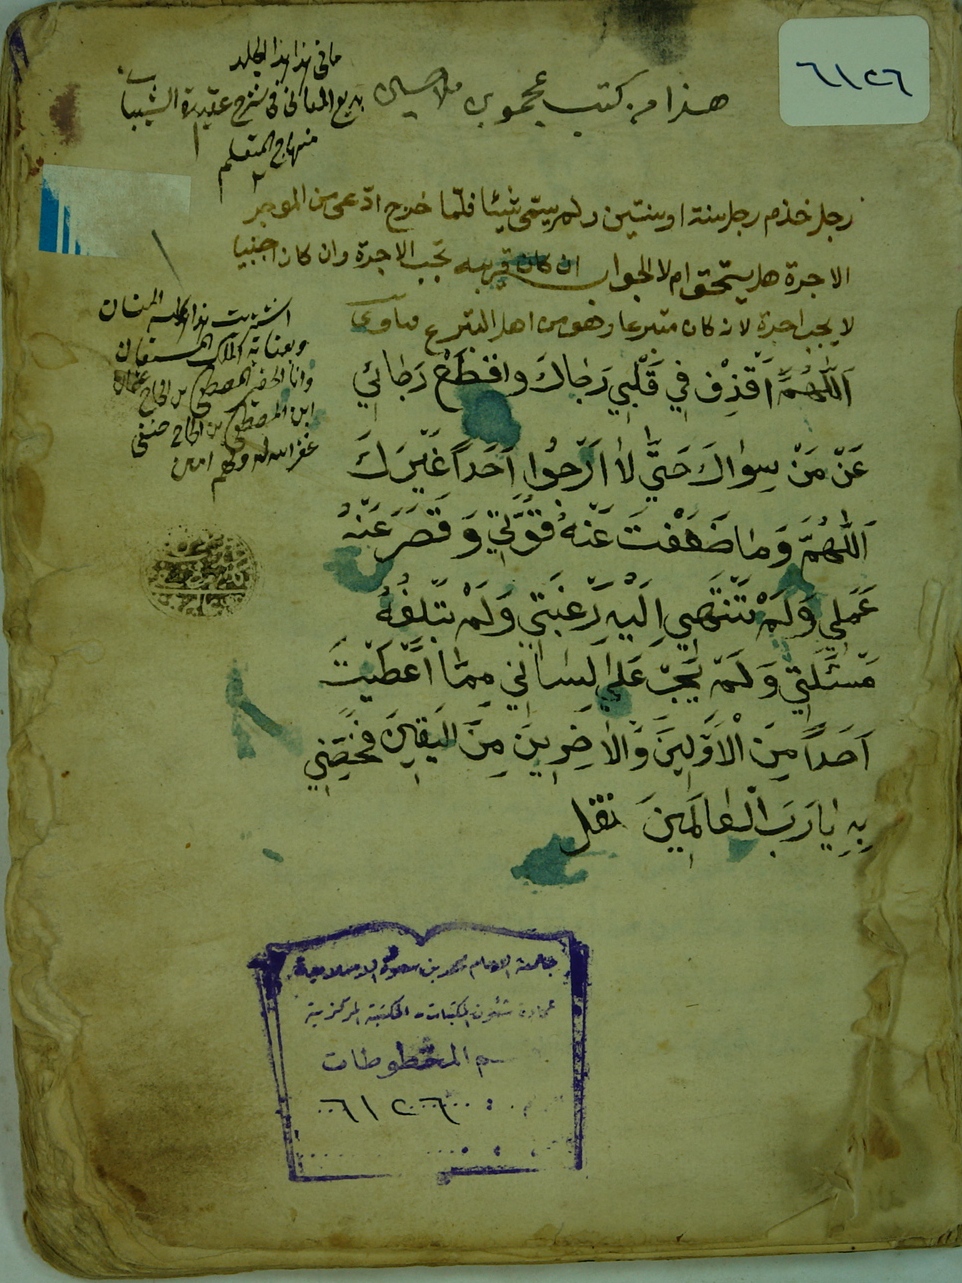 ٦١٢٦
ما في هذا الجلد
هذا من كتب
بديع المعاني في شرح عقيدة الشيباني
١
منهاج المتعلم
٢
رجل خدم رجل سنة او سنتين ولم يسمى شيئا فلما خرج ادعى من الموجر
الاجرة هل يستحق ام لا الجواب ان كان قريبه تجب الاجرة وان كان اجنبيا
لا يجب اجرة لانه كان متبرعا وهو من اهل التبرع فتاوى
اشتريت هذا المنان
وبعناية الملك المستعان
وانا الحقير مصطفى بن الحاج
ابن المصطفى بن الحاج
غفر الله له ولهم امين
اَللّٰهُمَّ اَقْذِفْ فِي قَلْبِي رَجَاكَ وَاقْطَعْ رَجَائِي
عَنْ مَنْ سِوَاكَ حَتَّى لَا اَرْجُوا اَحَدًا غَيْرَكَ
اَللّٰهُمَّ وَمَا ضَعُفَتْ عَنْهُ قُوَّتِي وَقَصَرَ عَنْهُ
عَمَلِي وَلَمْ تَنْتَهِي اِلَيْهِ رَغْبَتِي وَلَمْ تَبْلُغْهُ
مَسْئَلَتِي وَلَمْ يَجْرِ عَلَى لِسَانِي مِمَّا اَعْطَيْتَ
اَحَدًا مِنَ الْاَوَّلِينَ وَالْاٰخِرِينَ مِنَ الْيَقِينَ فَخُصَّنِي
بِهِ يَا رَبَّ الْعَالَمِينَ نقل
جامعة الامام محمد بن سعود الاسلامية
عمادة شئون المكتبات - المكتبة المركزية
قسم المخطوطات
٦١٢٦